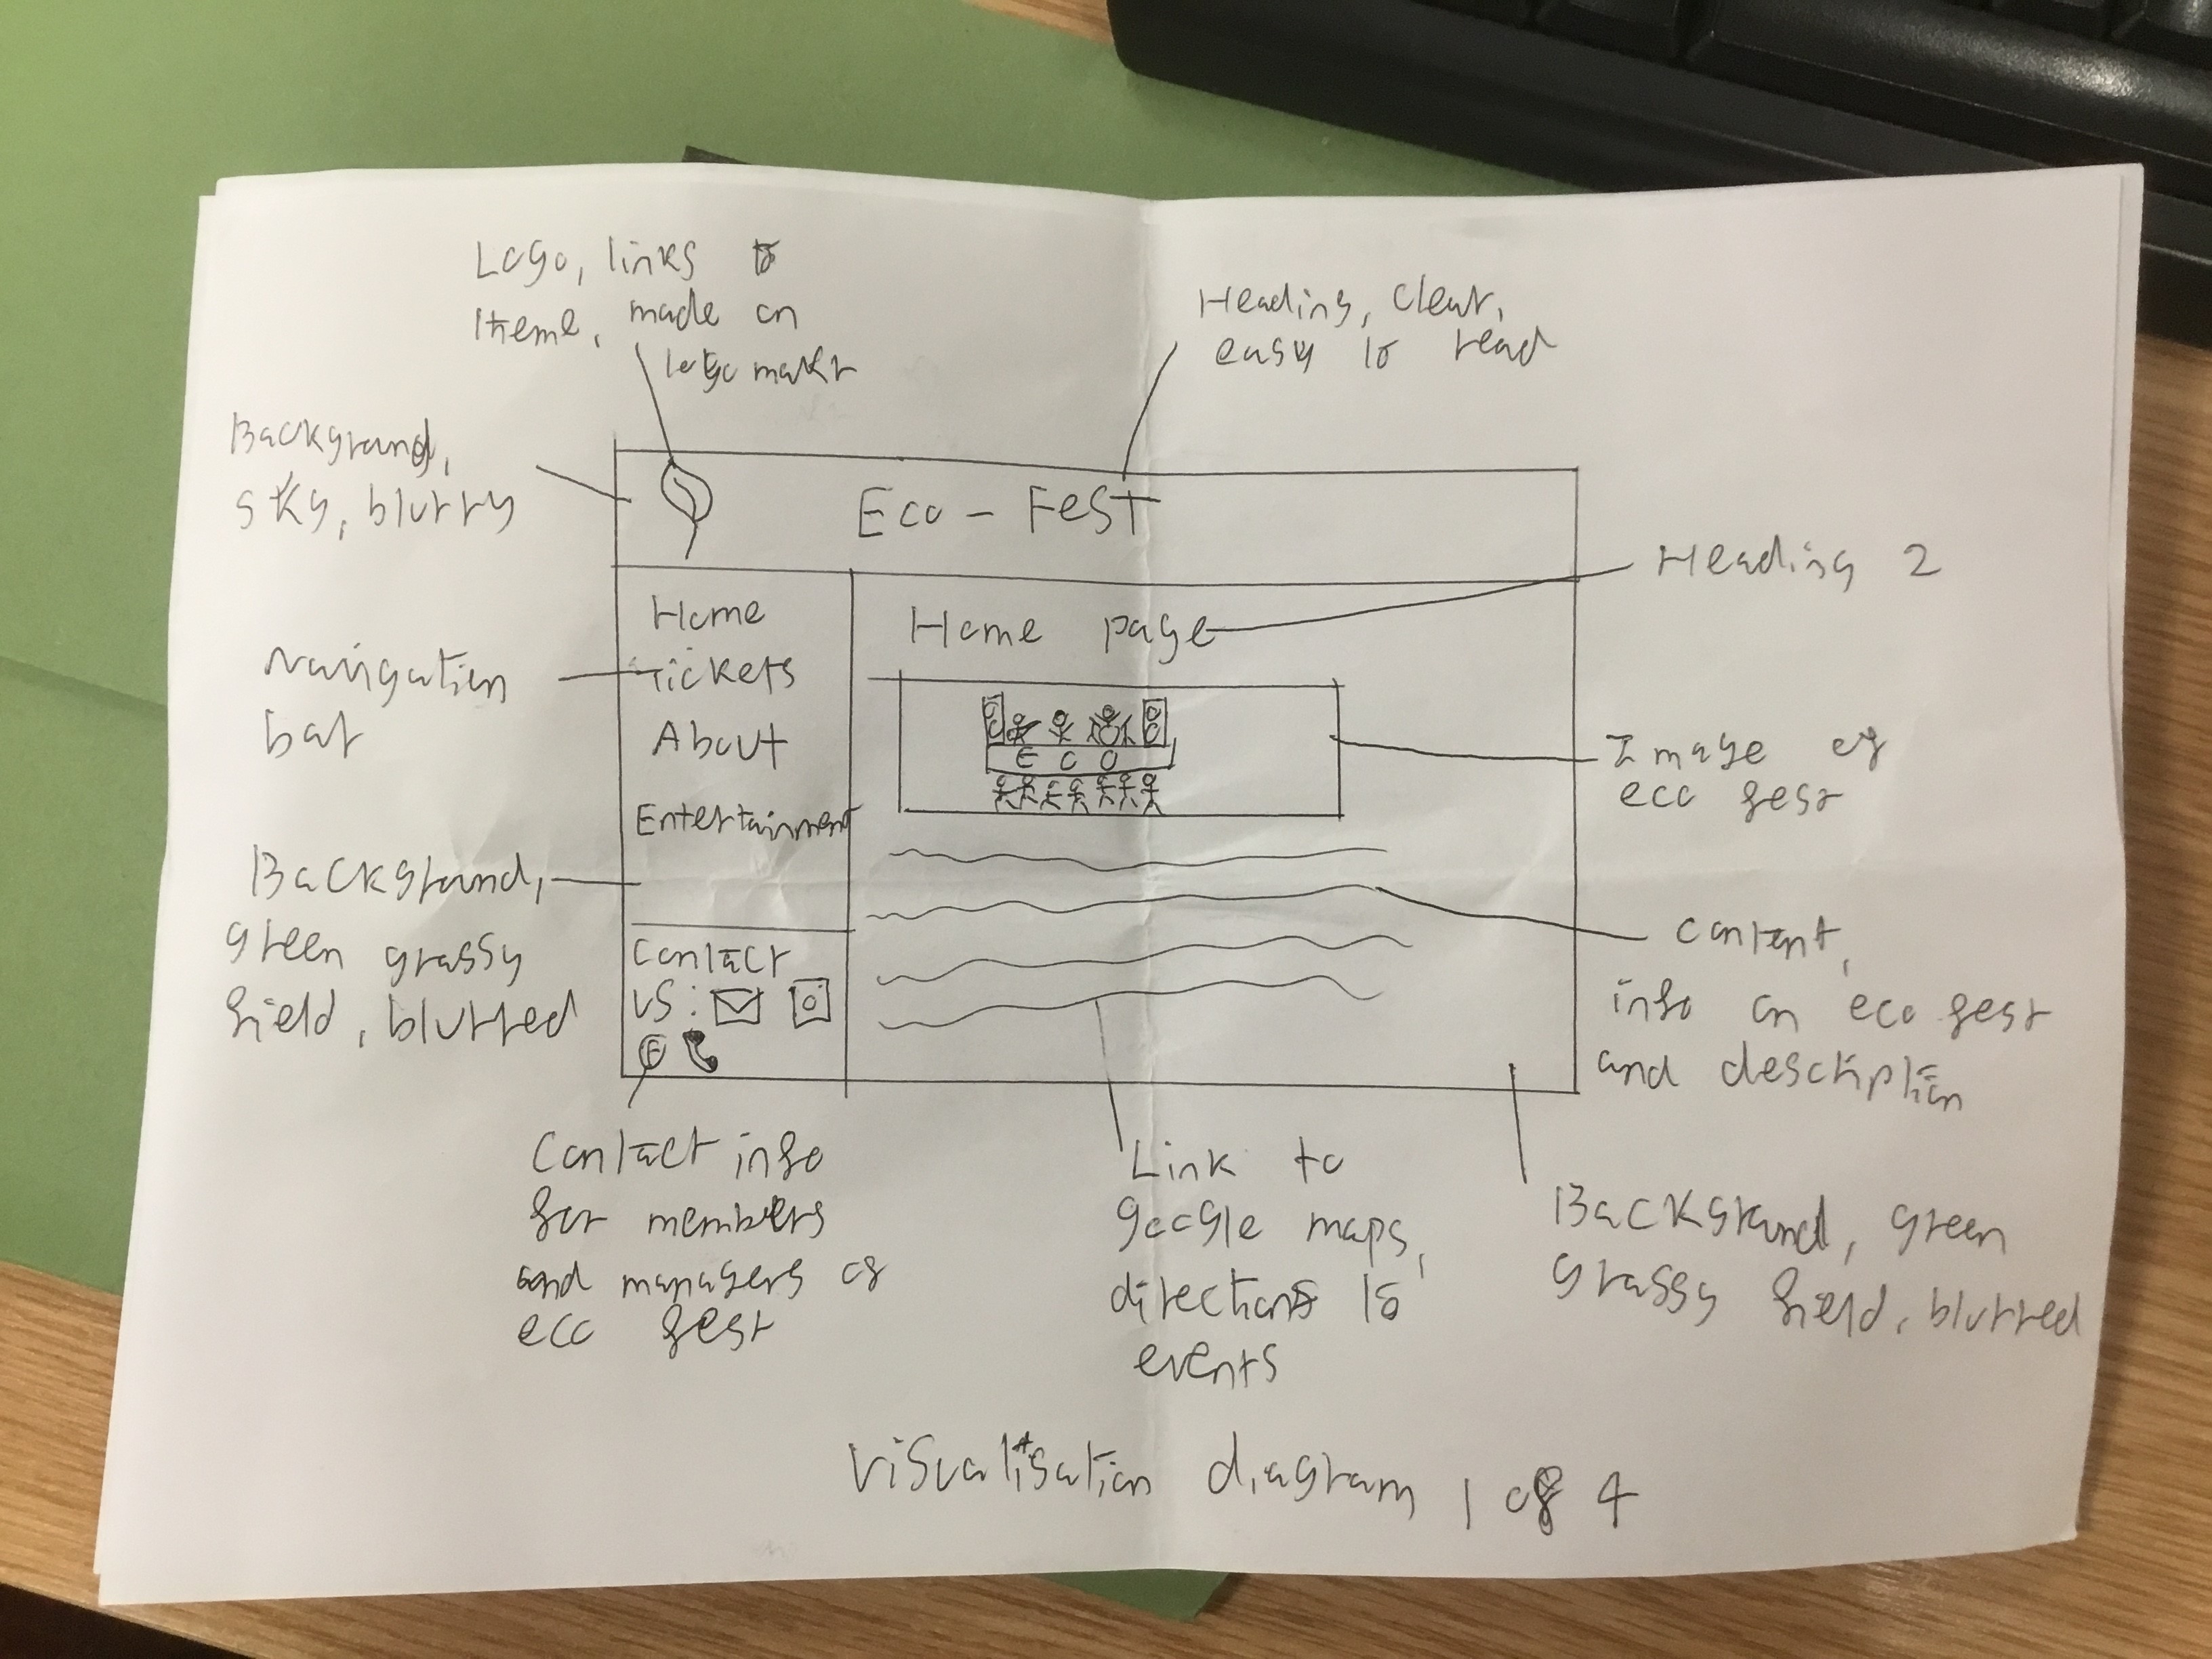 Logo, links to
theme, made on
logo makr
Heading, clear,
easy to read
Background,
sky, blurry
Eco - Fest
Heading 2
Home
Home page
Navigation
bar
Tickets
About
Entertainment
E C O
Image of
eco fest
Background,
green grassy
field, blurred
Contact
us:
f
content,
info on eco fest
and description
Contact info
for members
and managers of
eco fest
Link to
google maps,
directions to
events
Background, green
grassy field, blurred
Visualisation diagram 1 of 4